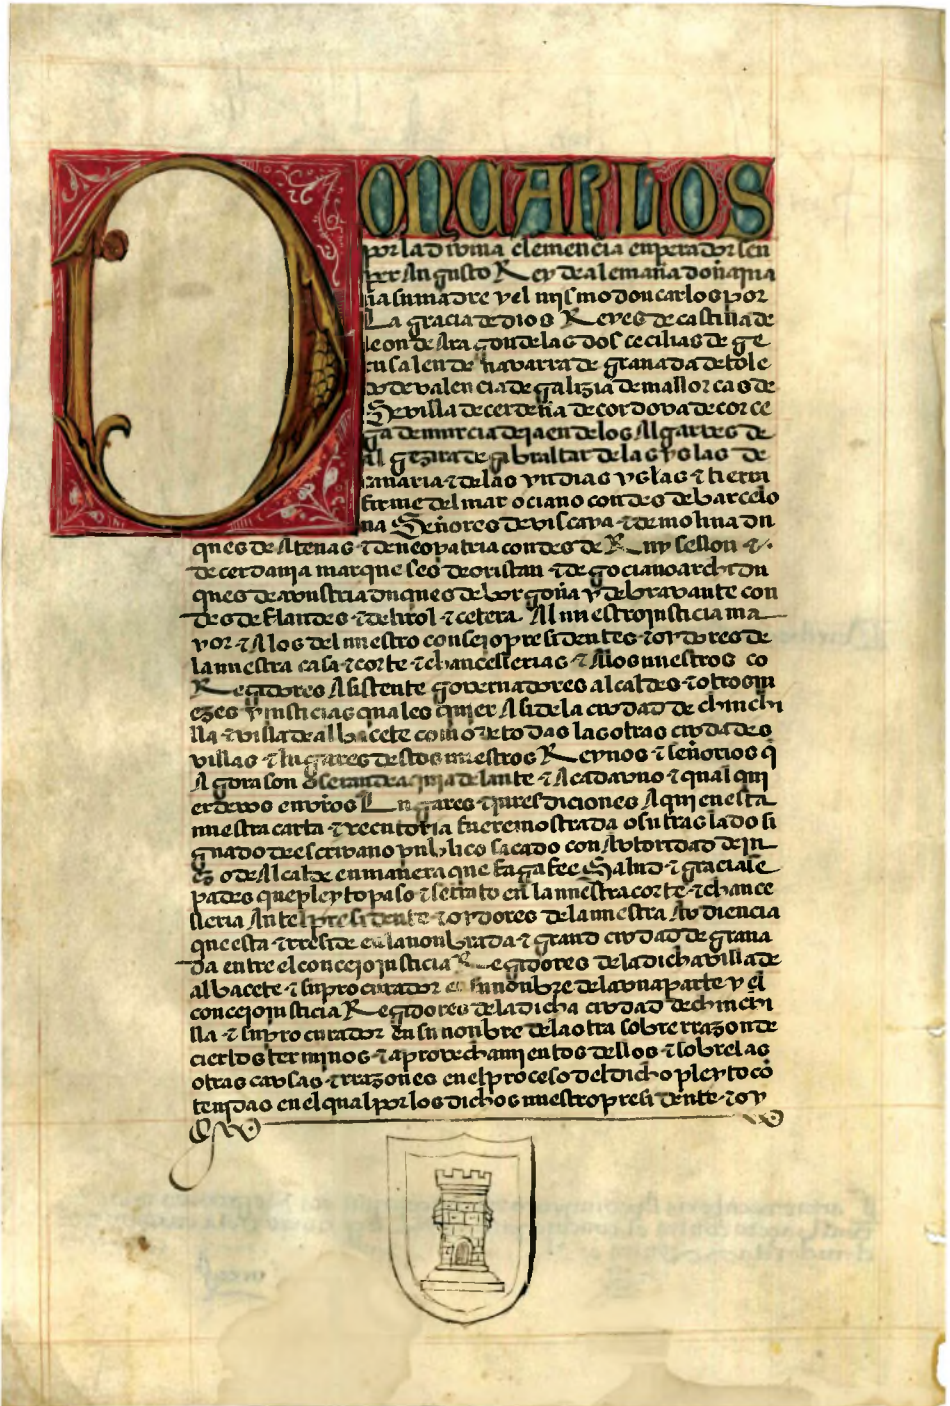 DON CARLOS
por la divina clemencia enperador sen
per Augusto Rey de alemaña doña jua
na su madre y el mismo don carlos por
La gracia de dios Reyes de castilla de
leon de Aragon de las dos cecilias de ge
rusalen de navarra de granada de tole
do de valencia de galizia de mallorcas de
Sevilla de cerdeña de cordova de corce
ga de murcia de jaen de los Algarves de
al gezira de gibraltar de las yslas de
canaria & de las yndias yslas & tierra
firme del mar ociano condes de barcelo
na Señores de viscaya & de molina du
ques de Atenas & de neopatria condes de Ruysellon &
de cerdania marqueses de oristan & de gociano archidu
ques de avustria duques de borgoña y de bravante con
des de flandes & de tirol & cetera. Al nuestro justicia ma
yor & A los del nuestro consejo presidentes & oydores de
la nuestra casa & corte & chancellerias & A los nuestros co
Regidores Asistente governadores alcaldes & otros ju
ezes y justicias quales quier Asi de la civdad de chinchi
lla & villa de albacete como de todas las otras civdades
villas & lugares destos nuestros Reynos & señorios q̃
Agora son o seran de aqui adelante & A cada vno & qual qui
er de vos en vr̃os Lugares & juresdiciones A quien esta
nuestra carta executoria fuere mostrada o su traslado si
gnado de escrivano publico sacado con Avtoridad de ju
ez o de Alcalde en manera que faga fee Salud & gracia se
pades que pleyto paso & se trato en la nuestra corte & chance
lleria Ante el presidente & oydores de la nuestra Avdiencia
que esta & rreside en la nonbrada & grand civdad de grana
da entre el concejo justicia Regidores de la dicha villa de
albacete & su procurador en su nonbre de la vna parte y el
concejo justicia Regidores de la dicha civdad de chinchi
lla & su procurador en su nonbre de la otra sobre rrazon de
ciertos terminos & aprovechamientos dellos & sobre las
otras cavsas & rrazones en el proceso del dicho pleyto cõ
tenidas en el qual por los dichos nuestro presidente & oy